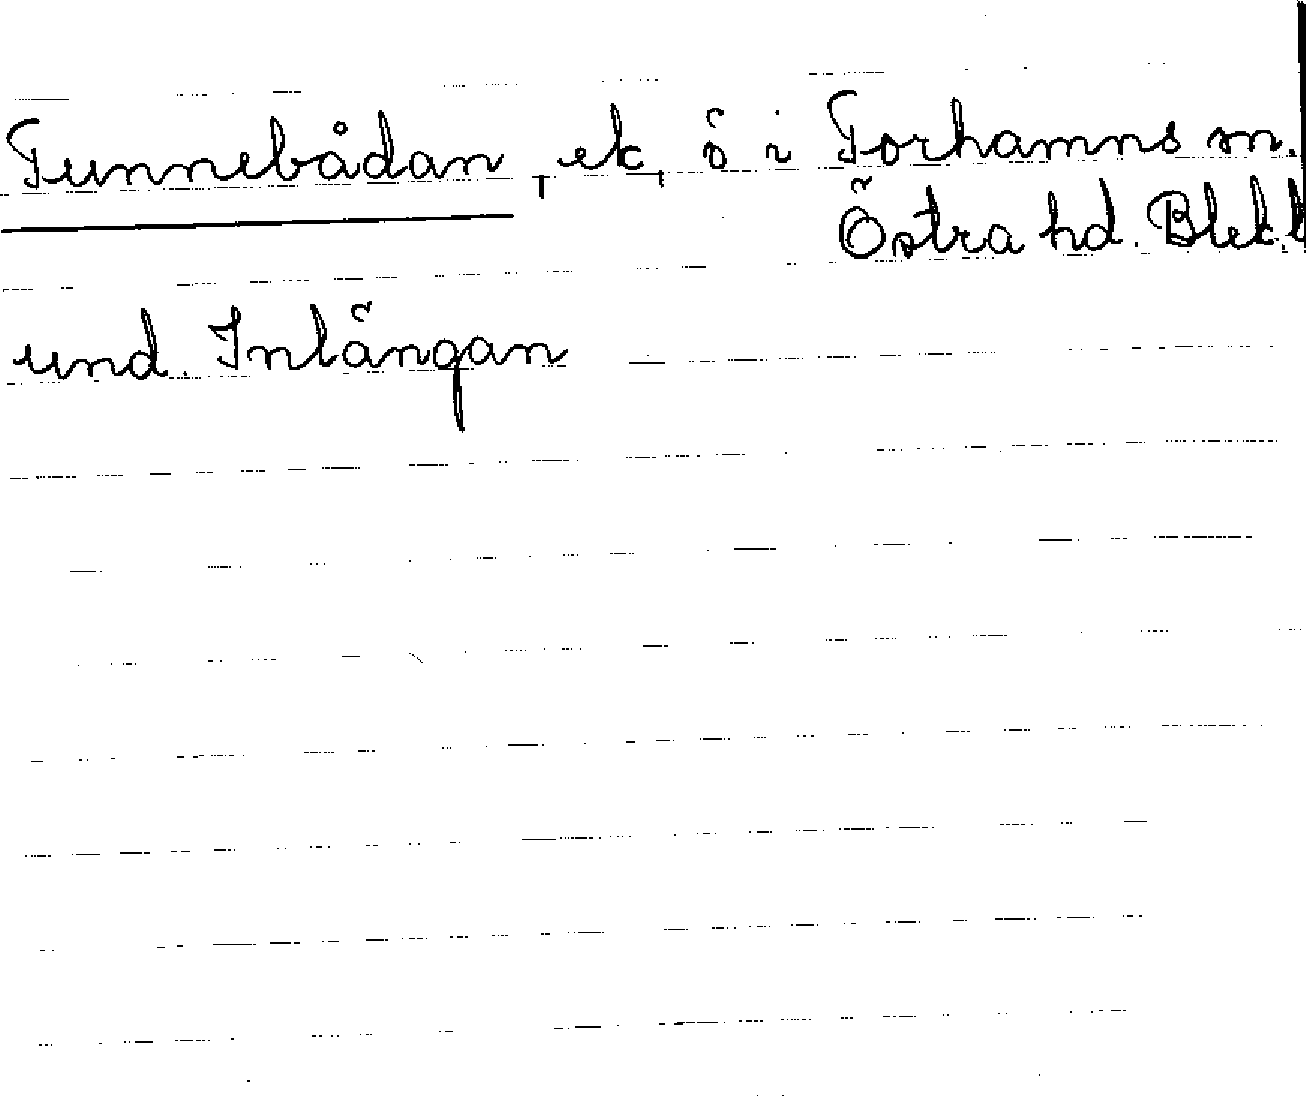 Tunnebådan, ek, ö i Torhamns sn.
Östra hd. Blek.l
und. Inlängan